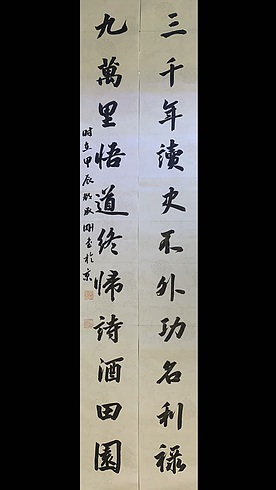 三千年讀史不外功名利祿
九萬里悟道終歸詩酒田園
時在甲辰書於京